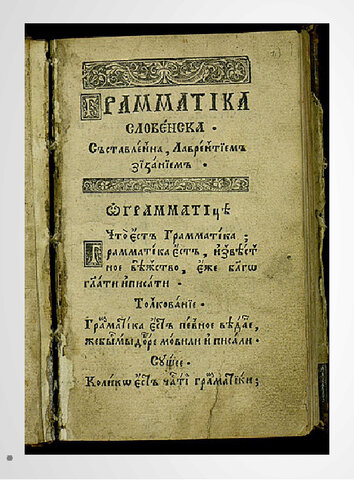 ГРАММАТІКА
СЛОВЕ́НСКА
Съставле́нна, Лаврентїемъ
Зїзанїемъ.
Ѡ҆ГРАММАТІцѣ
Что̀ є҆́стъ Грамматїка;
Грамматїка є҆́стъ, и҆звѣ́ст
ное вѣ́жство, є҆́же бл҃гѡ
гл҃ати и҆писати.
Толкованїе.
Граматїка є҆стъ певное вѣданїе,
жебысмы до́бре мовили и҆ писали.
Сꙋщее.
Коликѡ є҆стъ ча́стїй грамматїки;